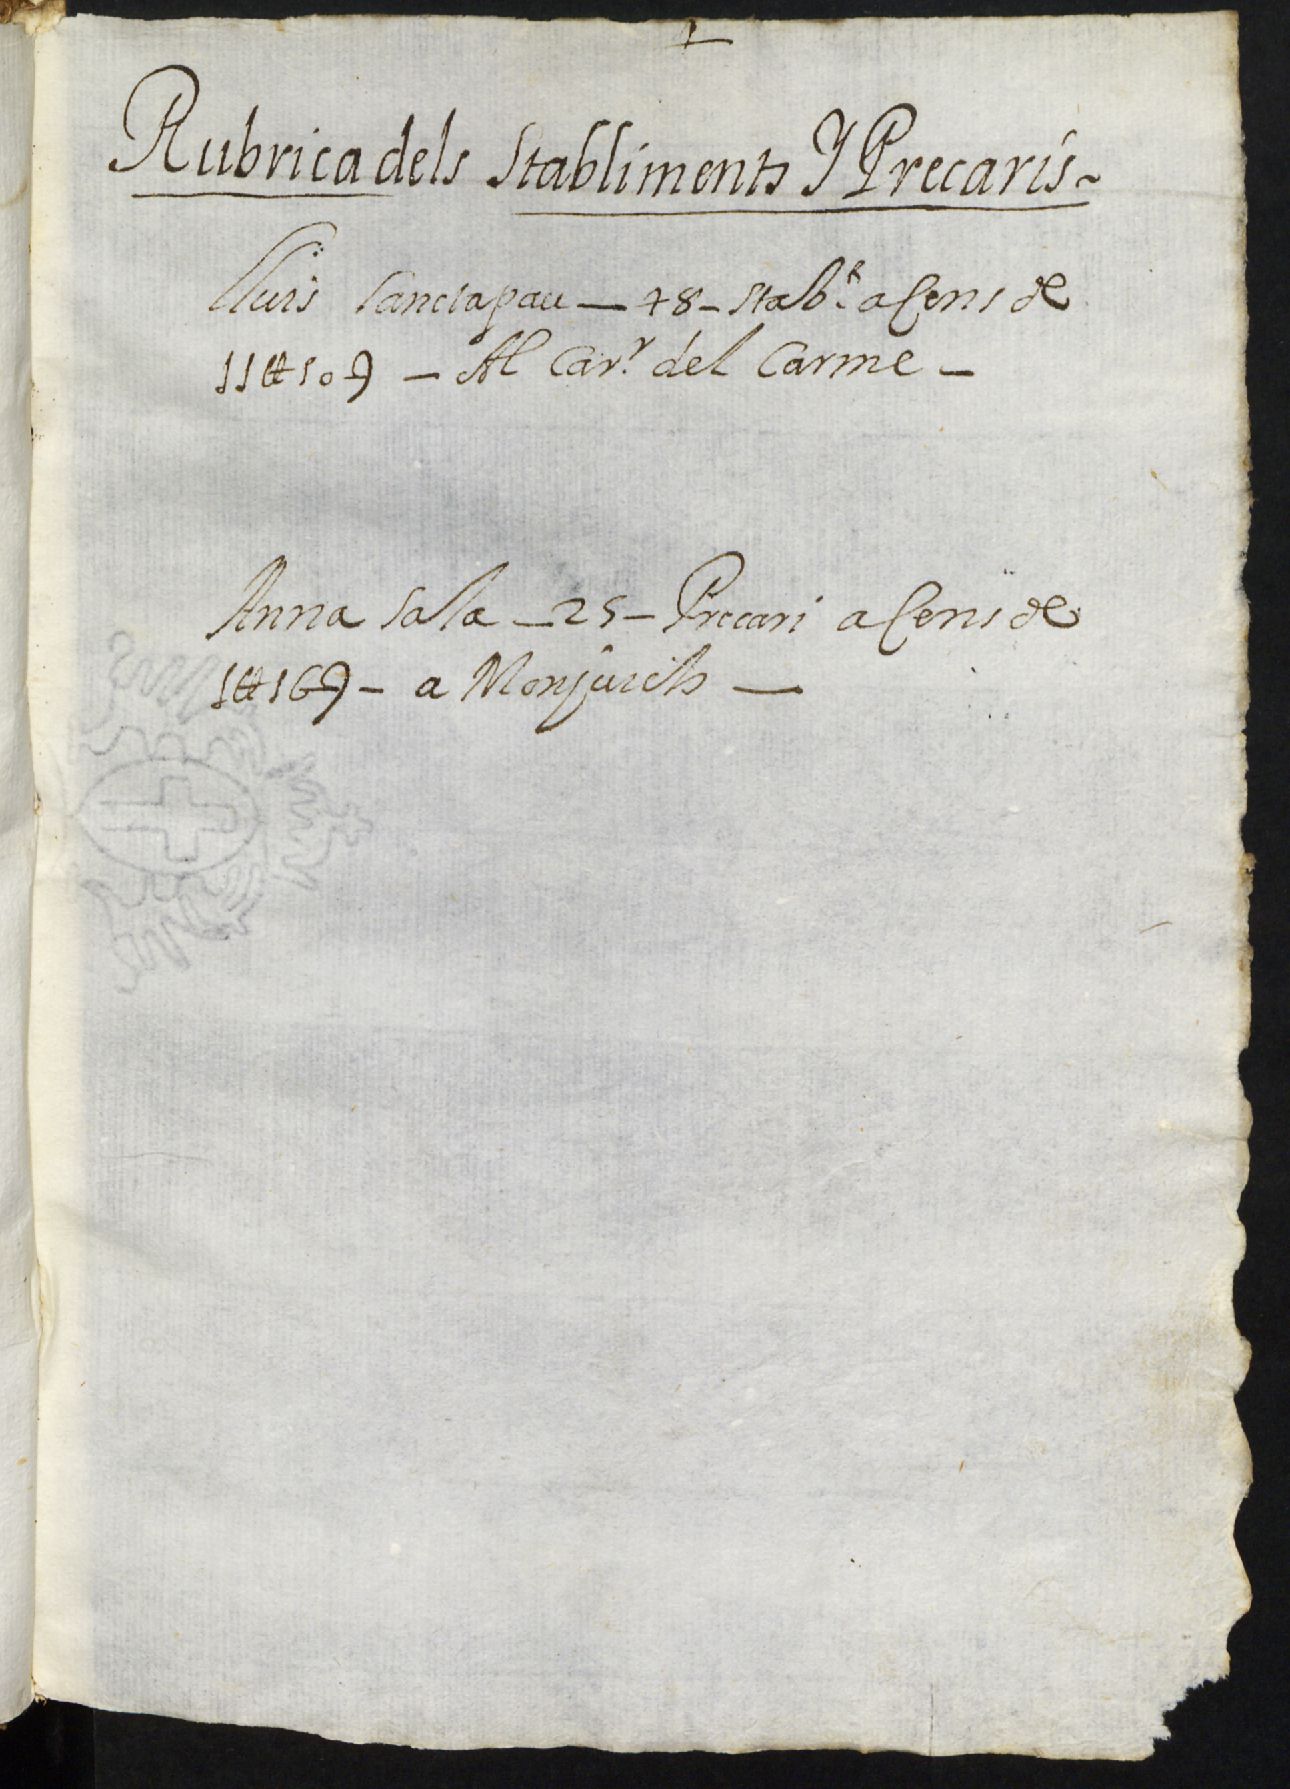 Rubrica dels Stabliments Y Precaris ~
Lluis Sanctapau — 48 – Stab.t a Cens de
11 ₶ 10 9 — Al Car.r del Carme —
Anna Sala — 25 – Precari a Cens de
1 ₶ 16 9 – a Monjuich —